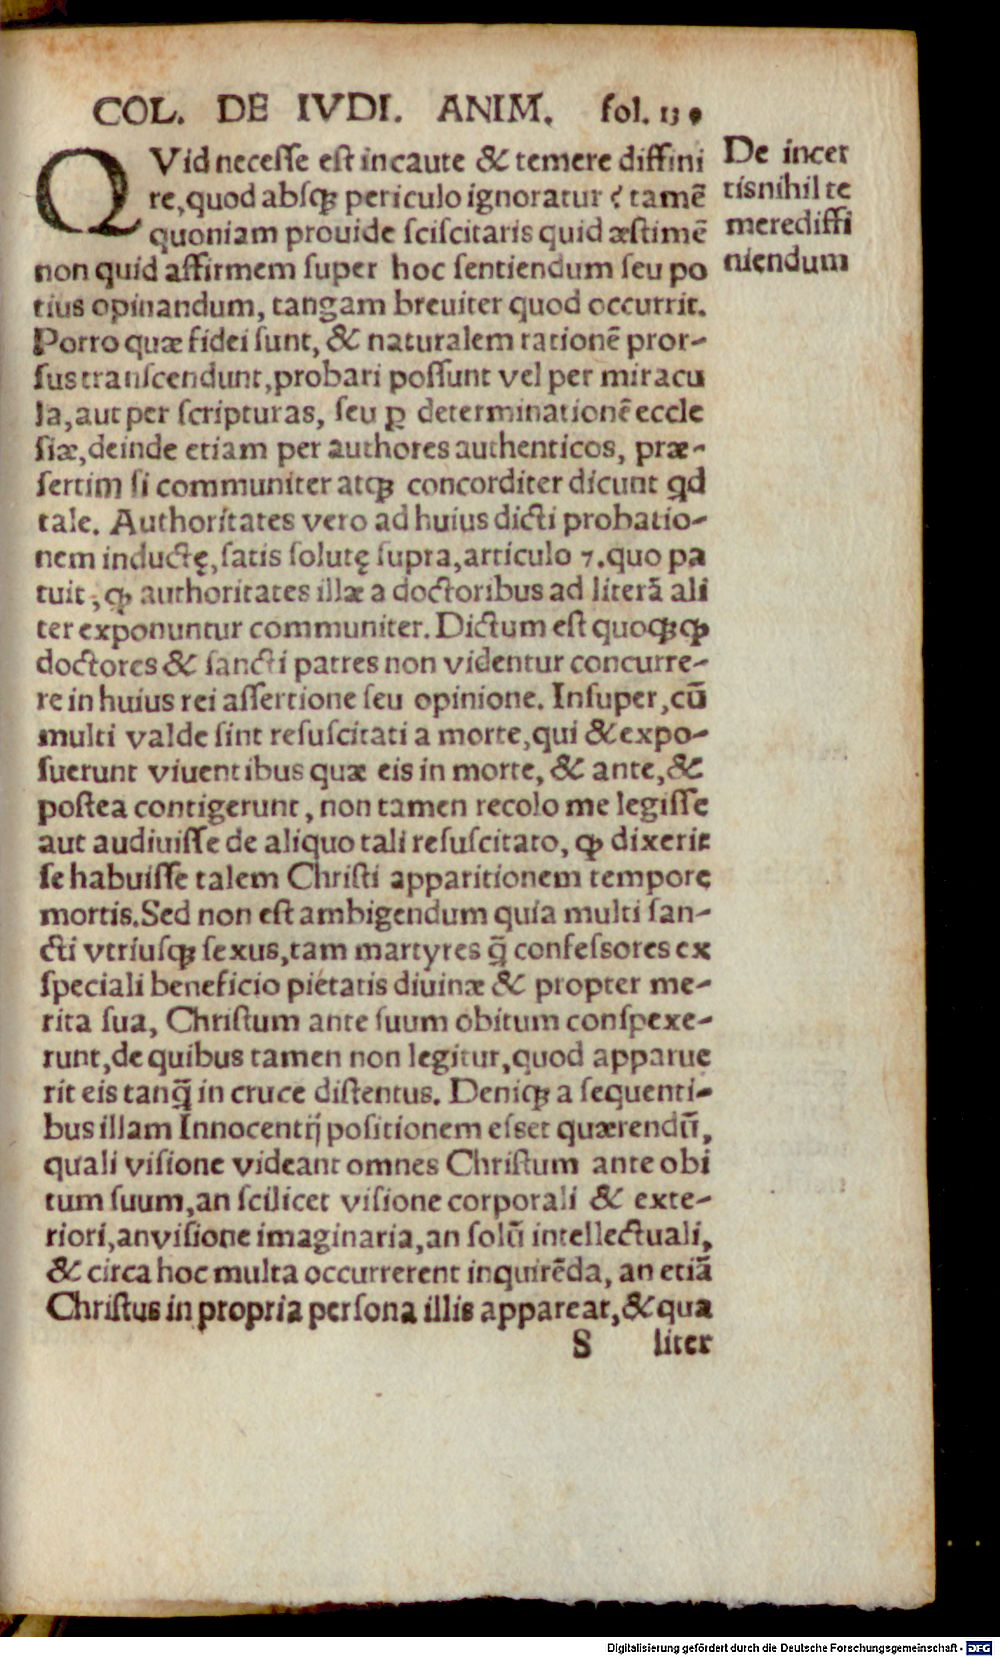 COL. DE IVDI. ANIM. fol. 139
QVid necesse est incaute & temere diffini
re, quod absqꝫ periculo ignoratur? tamē
quoniam prouide sciscitaris quid æstimē
non quid affirmem super hoc sentiendum seu po
tius opinandum, tangam breuiter quod occurrit.
Porro quæ fidei sunt, & naturalem rationē pror-
sus transcendunt, probari possunt vel per miracu
la, aut per scripturas, seu ꝑ determinationē eccle
siæ, deinde etiam per authores authenticos, præ-
sertim si communiter atqꝫ concorditer dicunt qd
tale. Authoritates vero ad huius dicti probatio-
nem inductę, satis solutę supra, articulo 7. quo pa
tuit, ꝙ authoritates illæ a doctoribus ad literā ali
ter exponuntur communiter. Dictum est quoqꝫ ꝙ
doctores & sancti patres non videntur concurre-
re in huius rei assertione seu opinione. Insuper, cū
multi valde sint resuscitati a morte, qui & expo-
suerunt viuentibus quæ eis in morte, & ante, &
postea contigerunt, non tamen recolo me legisse
aut audiuisse de aliquo tali resuscitato, ꝙ dixerit
se habuisse talem Christi apparitionem tempore
mortis. Sed non est ambigendum quia multi san-
cti vtriusqꝫ sexus, tam martyres q̄ confessores ex
speciali beneficio pietatis diuinæ & propter me-
rita sua, Christum ante suum obitum conspexe-
runt, de quibus tamen non legitur, quod apparue
rit eis tanq̄ in cruce distentus. Deniqꝫ a sequenti-
bus illam Innocentij positionem esset quærendū,
quali visione videant omnes Christum ante obi
tum suum, an scilicet visione corporali & exte-
riori, an visione imaginaria, an solū intellectuali,
& circa hoc multa occurrerent inquirēda, an etiā
Christus in propria persona illis appareat, & qua
S liter
De incer
tis nihil te
mere diffi
niendum
Digitalisierung gefördert durch die Deutsche Forschungsgemeinschaft - DFG